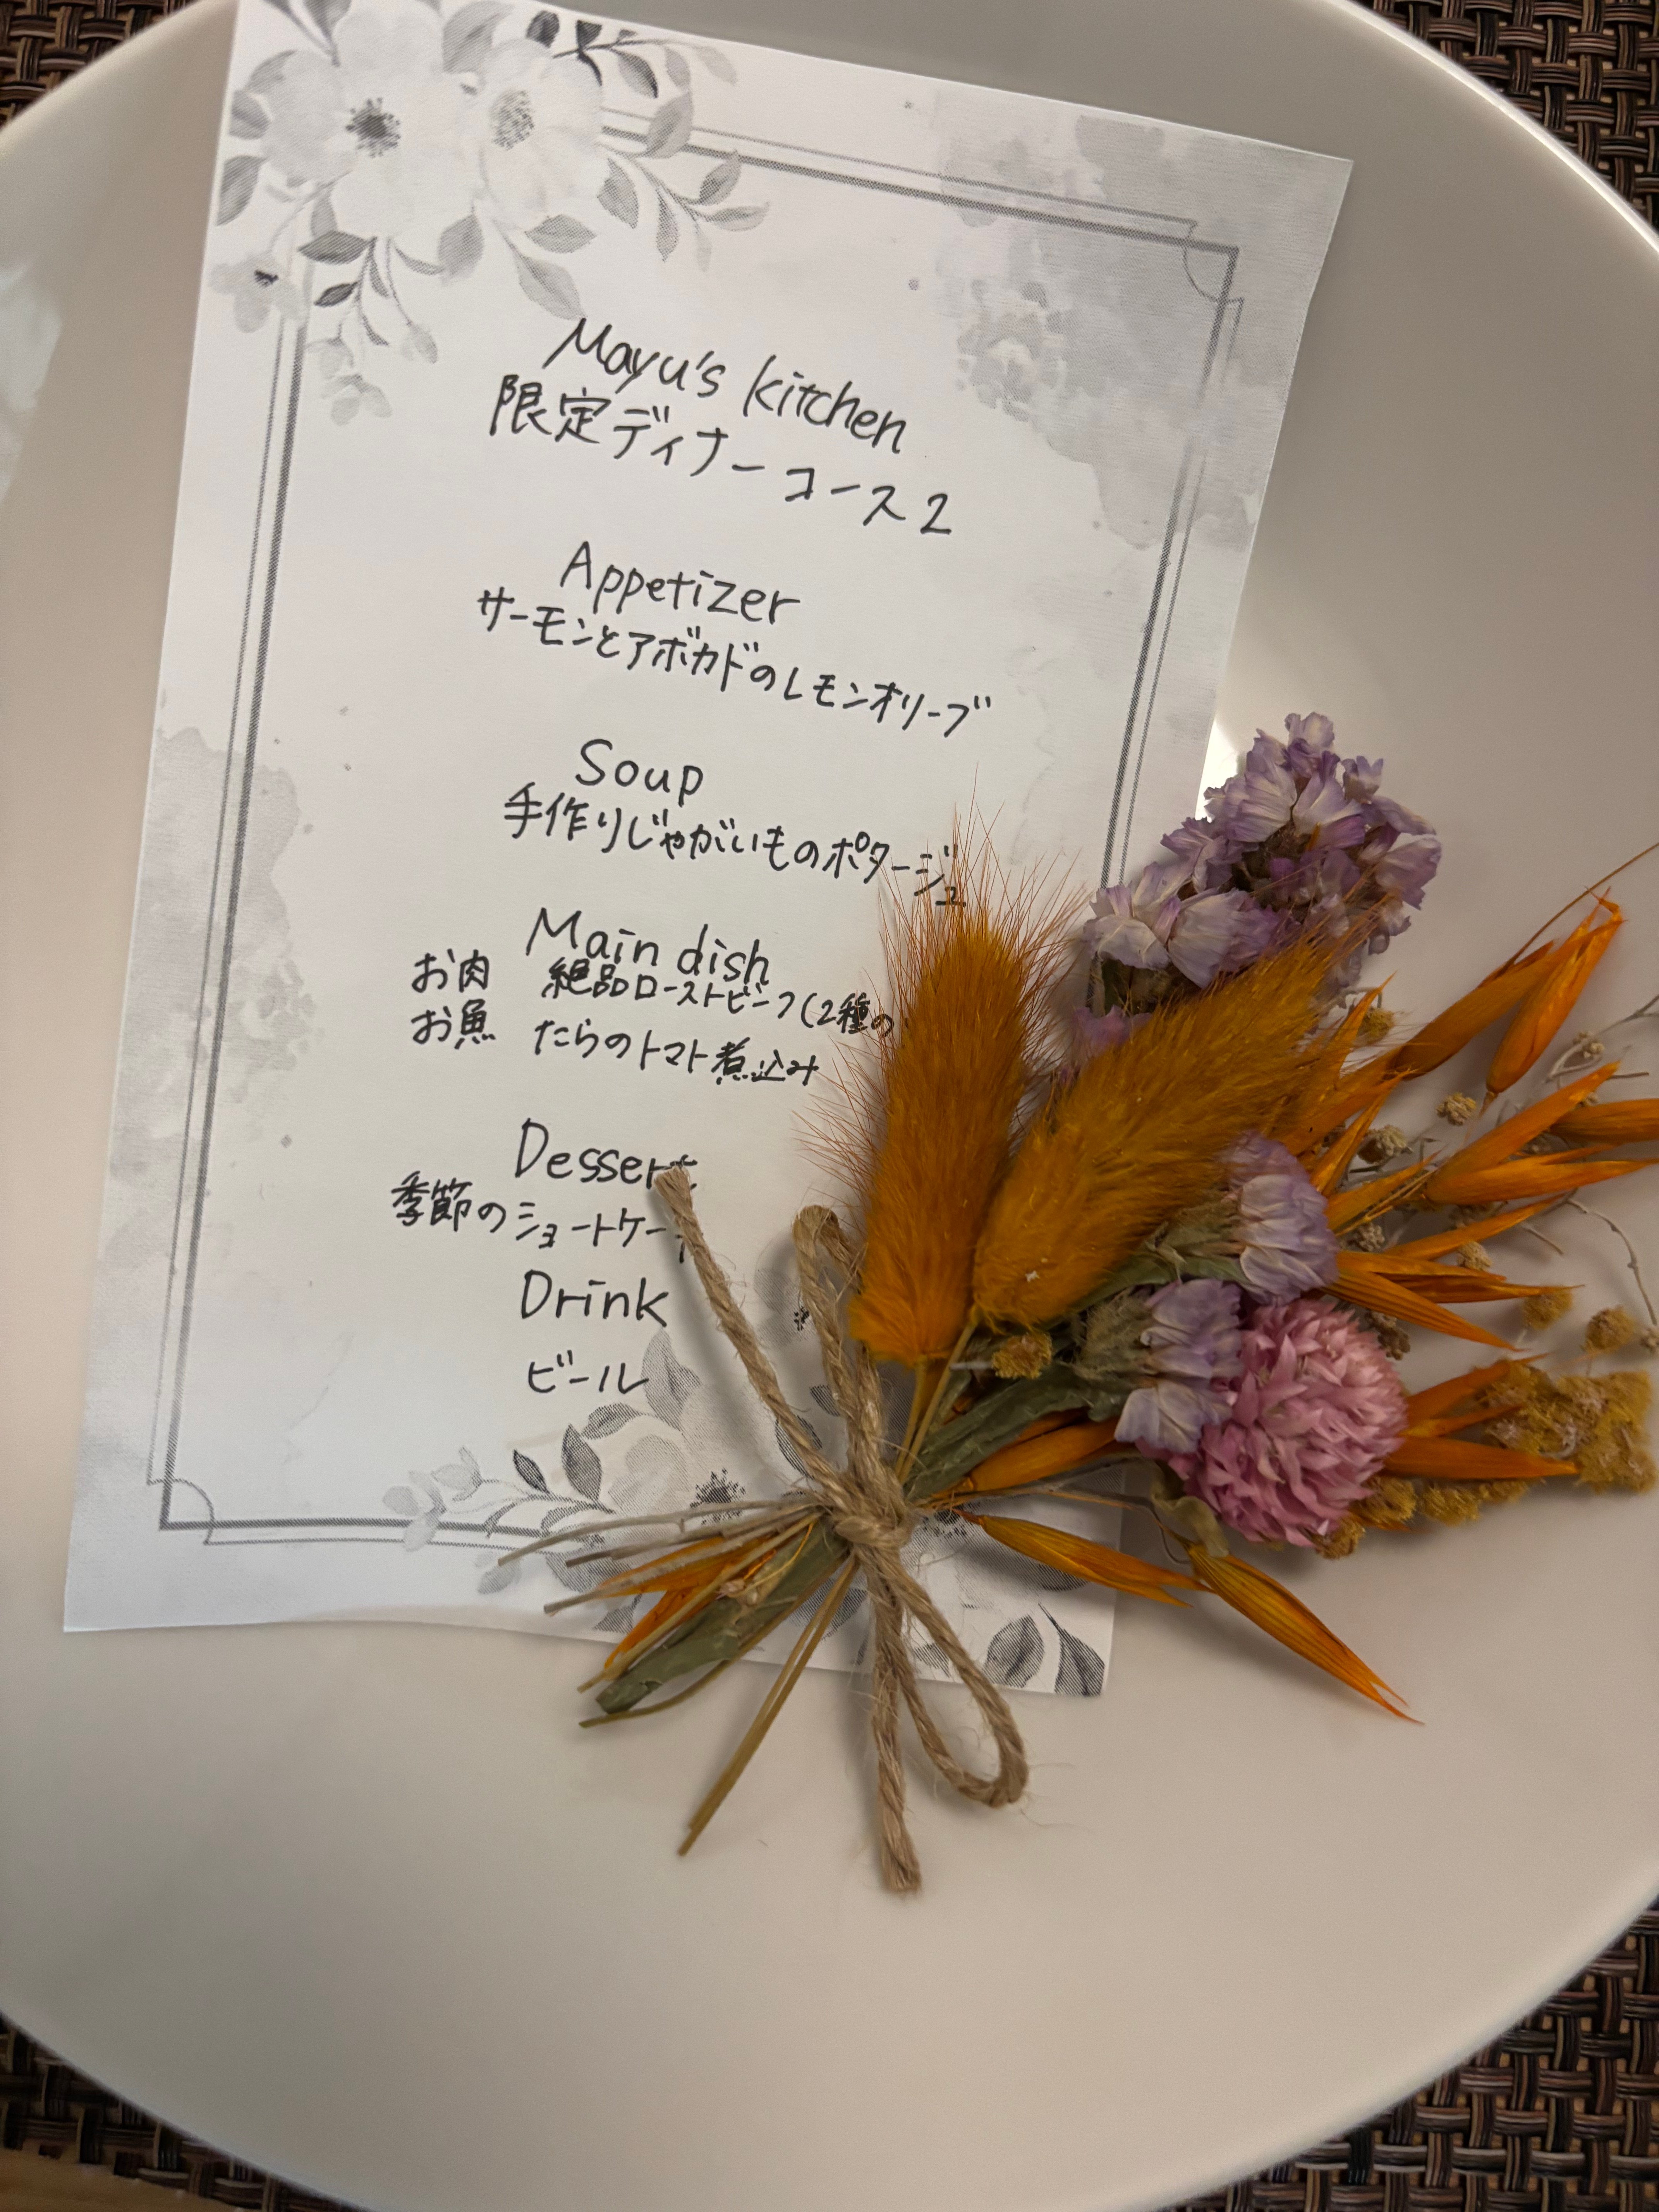 Mayu's kitchen
限定ディナーコース2
Appetizer
サーモンとアボカドのレモンオリーブ
Soup
手作りじゃがいものポタージュ
Main dish
お肉 絶品ローストビーフ(2種の
お魚 たらのトマト煮込み
Dessert
季節のショートケーキ
Drink
ビール